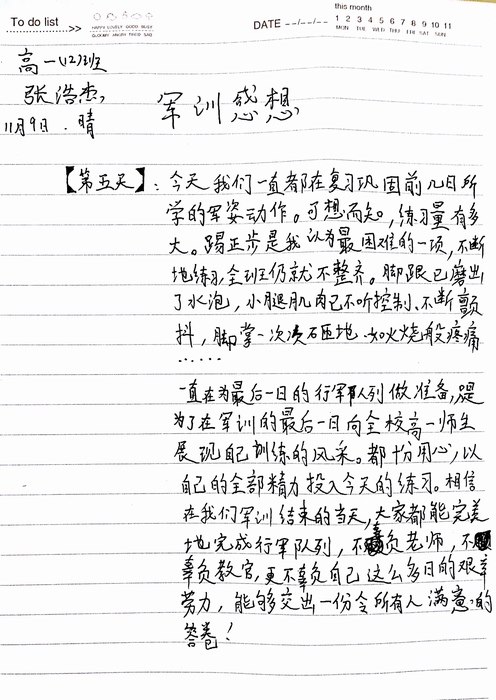 To do list
>>
HAPPY LOVELY GOOD BUSY
GLOOMY ANGRY TIRED SAD
DATE --/--/--
this month
1 2 3 4 5 6 7 8 9 10 11
MON TUE WED THU FRI SAT SUN
高一(12)班
张浩杰,
11月9日.晴
军训感想
【第五天】:今天我们一直都在复习巩固前几日所
学的军姿动作。可想而知,练习量有多
大。踢正步是我认为最困难的一项,不断
地练习,全班仍就不整齐。脚跟已磨出
了水泡,小腿肌肉已不听控制、不断颤
抖,脚掌一次次砸地 如火烧般疼痛
……
一直在为最后一日的行军队列做准备,是
为了在军训的最后一日向全校高一师生
展现自己训练的风采。都十份用心,以
自己的全部精力投入今天的练习。相信
在我们军训结束的当天,大家都能完美
地完成行军队列,不辜负老师,不
辜负教官,更不辜负自己这么多日的艰辛
劳力,能够交出一份令所有人满意的
答卷!